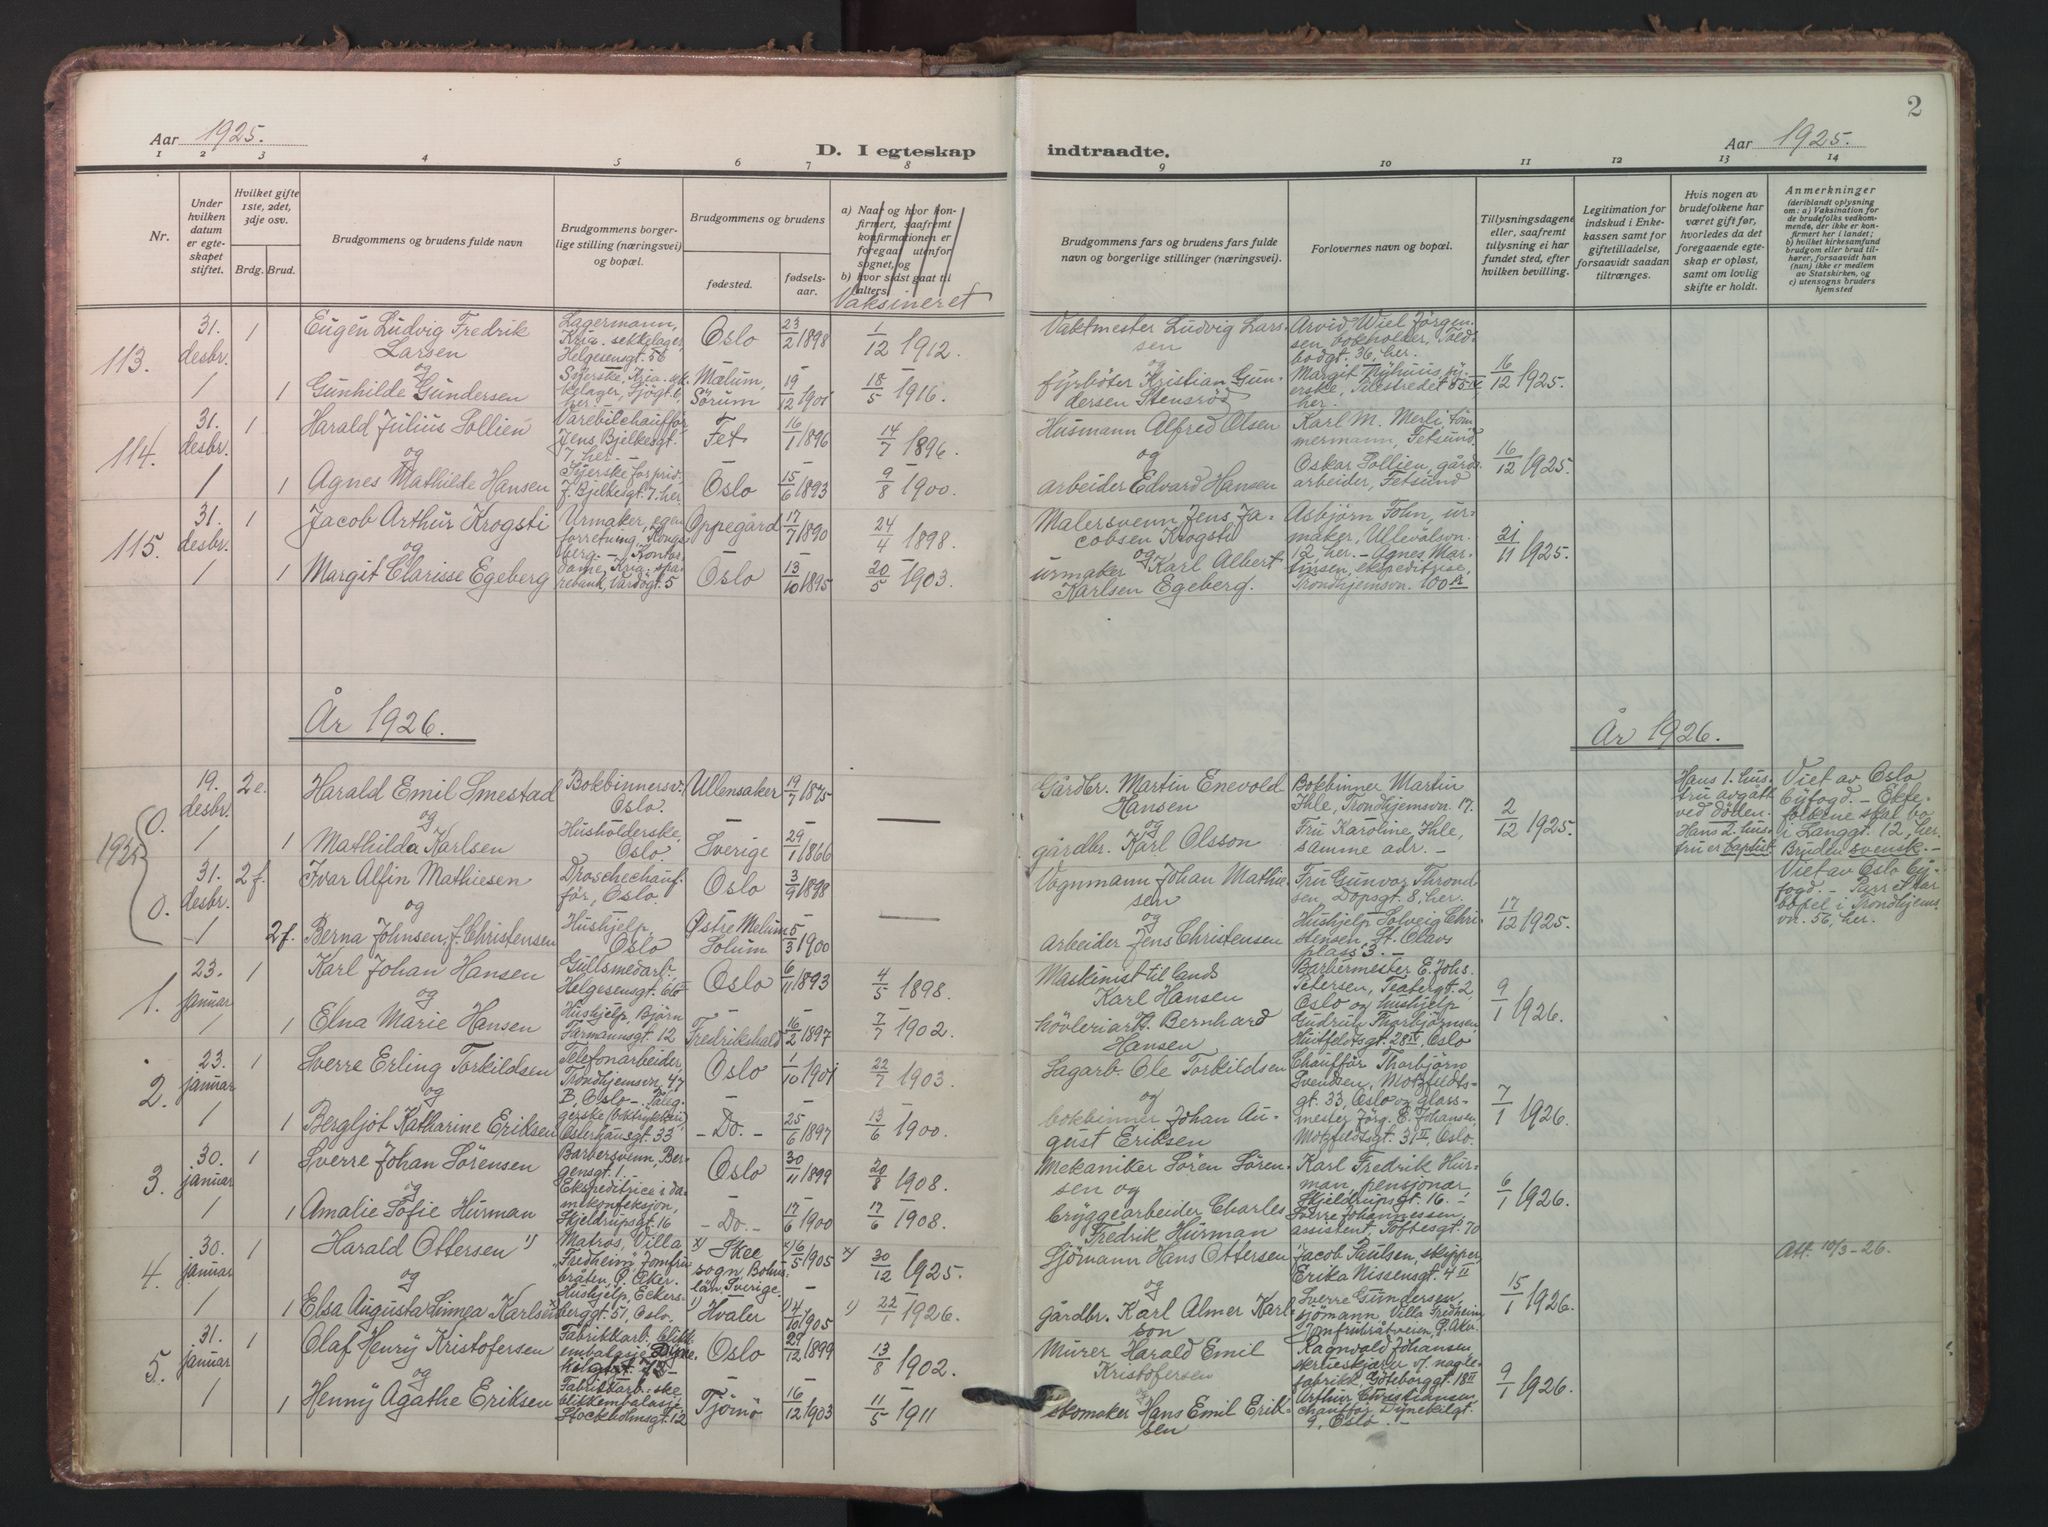 2
Aar 1925.
D. I egteskap indtraadte.
Aar 1925.
1 2 3 4 5 6 7 8 9 10 11 12 13 14
Nr.
Under hvilken datum er egteskapet stiftet.
Hvilket gifte 1ste, 2det, 3dje osv.
Brdg. Brud.
Brudgommens og brudens fulde navn
Brudgommens borgerlige stilling (næringsvei) og bopæl.
Brudgommens og brudens
fødested.
fødselsaar.
a) Naar og hvor konfirmert, saafremt konfirmationen er foregaat utenfor sognet, og
b) hvor sidst gaat til alters.
Vaksineret
Brudgommens fars og brudens fars fulde navn og borgerlige stillinger (næringsvei).
Forlovernes navn og bopæl.
Tillysningsdagene eller, saafremt tillysning ei har fundet sted, efter hvilken bevilling.
Legitimation for indskud i Enkekassen samt for giftetilladelse, forsaavidt saadan tiltrænges.
Hvis nogen av brudefolkene har været gift før, hvorledes da det foregaaende egteskap er opløst, samt om lovlig skifte er holdt.
Anmerkninger (deriblandt oplysning om: a) Vaksination for de brudefolks vedkommende, der ikke er konfirmert her i landet; b) hvilket kirkesamfund brudgom eller brud tilhører, forsaavidt han (hun) ikke er medlem av Statskirken, og c) utensogns bruders hjemsted
113. 31. desbr. 1 Eugén Ludvig Fredrik Larsen
Lagermann, Kria. sekkelager, Helgesensgt. 56
Oslo 23/2 1898 1/12 1912.
Vaktmester Ludvig Larssen
Arvid Wiel Jörgensen, bokholder, Toldbodgt. 36, her.
16/12 1925.
og
1 1 Gunhilde Gundersen
Syerske, Kria. sekkelager, Sjögt. 6, her.
Mælum, Sörum 19/12 1901 18/5 1916.
og fyrböter Kristian Gundersen Stensröd
Margit Nyhuus, syerske, Pilestredet 85 IV, her.
114. 31. desbr. 1 Harald Julius Sollien
Varebilchaufför Jens Bjelkesgt. 7, her.
Fet 16/1 1896 14/7 1896.
Husmann Alfred Olsen
Karl M. Merli, tömmermann, Fetsund.
16/12 1925.
og
1 1 Agnes Mathilde Hansen
Syerske for prid. J. Bjelkesgt. 7. her
Oslo 15/6 1893 9/8 1900.
og arbeider Edvard Hansen
Oskar Sollien, gårdsarbeider, Fetsund
115. 31. desbr. 1 Jacob Arthur Krogsti
Urmaker, egen forretning. Kongsberg.
Oppegård 17/7 1890 24/4 1898.
Malersvenn Jens Jacobsen Krogsti
Asbjörn Tohn, urmaker, Ullevålsvn. 12, her.
21/11 1925.
og
1 1 Margit Clarisse Egeberg
Kontordame, Kria. sparebank, Vardögt. 5
Oslo 13/10 1895 20/5 1903.
og urmaker Karl Albert Karlsen Egeberg.
Agnes Martinsen, ekspeditrise, Trondhjemsvn. 100 A
År 1926.
År 1926.
1925
0. 19. desbr. 2e. Harald Emil Smestad
Bokbinnersv. Oslo.
Ullensaker 19/7 1875 —
Gårdbr. Martin Enevold Hansen
Bokbinner Martin Ihle, Trondhjemsvn. 17.
2/12 1925.
Hans 1. hustru avgått ved döden. Hans 2. hustru er baptist.
Viet av Oslo byfogd. – Ektefolkene skal bo i Langgt. 12, her. Bruden svensk. –
og
1 1 Mathilda Karlsen
Husholderske, Oslo.
Sverige 29/1 1866
og gårdbr. Karl Olsson
Fru Karoline Ihle, samme adr. –
0. 31. desbr. 2f. Ivar Alfin Mathiesen
Droschechaufför, Oslo
Oslo 3/9 1898 —
Vognmann Johan Mathiesen
Fru Gunvor Throndsen, Dopsgt. 8, her.
17/12 1925.
Viet av Oslo byfogd. – Parret har bopel i Trondhjemsvn. 56, her.
og
1 2f. Berna Johnsen, f. Christensen
Hushjelp, Oslo
Østre Melum Solum 5/3 1900
og Arbeider Jens Christensen
Hushjelp Solveig Christensen, St. Olavs plass 3. –
1. 23. januar 1 Karl Johan Hansen
Gullsmedarb. Helgesensgt. 66 II
Oslo 6/11 1893 4/5 1898.
Maskinist til lands Karl Hansen
Barbermester E. Johs. Petersen, Teatergt. 2, Oslo
9/1 1926.
og
1 1 Elna Marie Hansen
Hushjelp, Björn Farmannsgt. 12
Fredrikshald 16/2 1897 7/7 1902.
og hövleriarb. Bernhard Hansen
og hushjelp Gudrun Thorbjörnsen, Huitfeldtsgt. 28 IV, Oslo
2. 23. januar 1 Sverre Erling Torkildsen
Telefonarbeider, Trondhjemsvn. 47 B, Oslo
Oslo 1/10 1901 22/7 1903.
Lagarb. Ole Torkildsen
Chaufför Thorbjörn Svendsen, Motzfeldtsgt. 33, Oslo
7/1 1926.
og
1 1 Bergljot Katharine Eriksen
Osterhausgt. 33
– Do. – 25/6 1897 13/6 1900.
og bokbinner Johan August Eriksen
og glassmester Jörg. E. Johansen, Motzfeldtsgt. 31 II, Oslo.
3. 30. januar 1 Sverre Johan Sörensen
Barbersvenn, Bergensgt. 1.
Oslo 30/11 1899 20/8 1908.
Mekaniker Sören Sörensen
Karl Fredrik Hurman, pensjonær Skjeldrupsgt. 16.
6/1 1926.
og
1 1 Amalie Sofie Hurman
Ekspeditrice i damekonfeksjon, Skjeldrupsgt. 16
– Do. – 17/6 1900 17/6 1908.
og bryggearbeider Charles Fredrik Hurman
Sverre Johannessen, assistent, Toftesgt. 70
4. 30. januar 1 Harald Ottersen 1)
Matros, Villa "Fredheim", Jomfrubråten, Ö. Aker.
x) Skee sogn Bohuslän, Sverige. x) 16/5 1905 x) 30/12 1925.
Sjömann Hans Ottersen
Jacob Paulsen, skipper, Erika Nissensgt. 4 II
15/1 1926.
Att. 10/3-26.
og
1 1 Elsa Augusta Linnea Karlson
Hushjelp, Eckersberggt. 51, Oslo.
1) Hvaler 1) 4/10 1905 1) 22/1 1926.
og gårdbr. Karl Almer Karlson
Sverre Gundersen, sjömann, Villa Fredheim, Jomfrubråtveien, Ö. Aker.
5. 31. januar 1 Olaf Henry Kristofersen
Fabrikkarb. blikkemballasje
Oslo 29/12 1899 13/8 1902.
Murer Harald Emil Kristofersen
Ragnvald Johansen, skrueskjærer v. naglefabrikk, Göteborggt. 18 II
9/1 1926.
og
1 1 Henny Agathe Eriksen
Fabrikkarb.ske blikkemballasje, Stockholmsgt. 12
Tjömö 16/12 1903 11/5 1911
og skomaker Hans Emil Eriksen
Arthur Christiansen chaufför, Dynekilgt. 9, Oslo. –